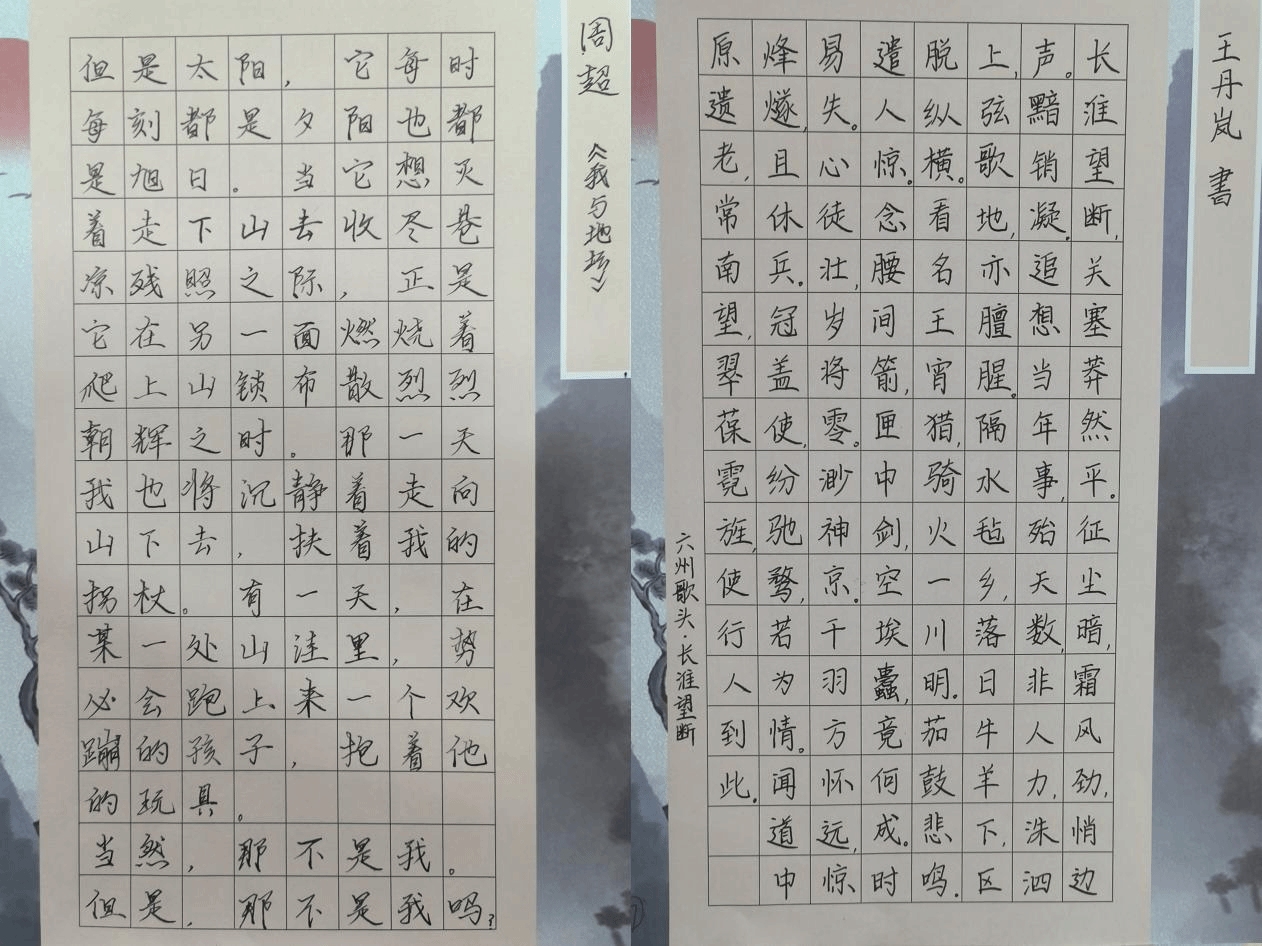 但是太阳，它每时
每刻都是夕阳也都
是旭日。当它熄灭
着走下山去收尽苍
凉残照之际，正是
它在另一面燃烧着
爬上山巅布散烈烈
朝辉之时。那一天
我也将沉静着走向
山下去，扶着我的
拐杖。有一天，在
某一处山洼里，势
必会跑上来一个欢
蹦的孩子，抱着他
的玩具。
当然，那不是我。
但是，那不是我吗？
周超
《我与地坛》
长淮望断，关塞莽然平。征尘暗，霜风劲，悄边
声。黯销凝。追想当年事，殆天数，非人力，洙泗
上，弦歌地，亦膻腥。隔水毡乡，落日牛羊下，区
脱纵横。看名王宵猎，骑火一川明。笳鼓悲鸣。
遣人惊。念腰间箭，匣中剑，空埃蠹，竟何成。时
易失。心徒壮，岁将零。渺神京。干羽方怀远，惊
烽燧，且休兵。冠盖使，纷驰骛，若为情。闻道中
原遗老，常南望，翠葆霓旌，使行人到此。
六州歌头·长淮望断
王丹岚 書